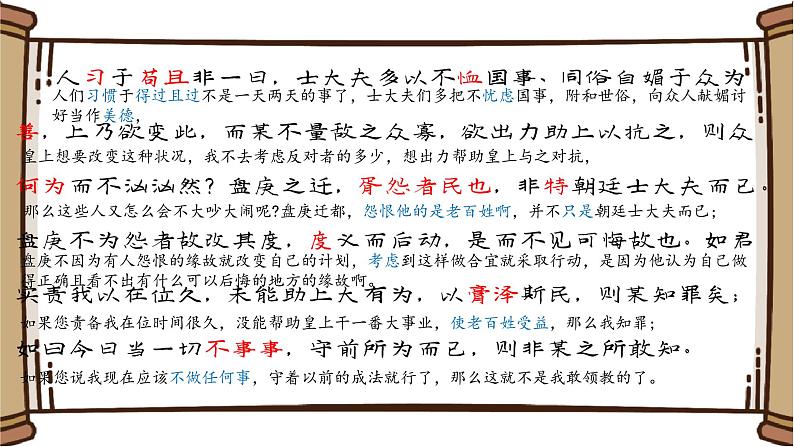 人习于苟且非一日，士大夫多以不恤国事、同俗自媚于众为
人们习惯于得过且过不是一天两天的事了，士大夫们多把不忧虑国事，附和世俗，向众人献媚讨
好当作美德，
善，上乃欲变此，而某不量敌之众寡，欲出力助上以抗之，则众
皇上想要改变这种状况，我不去考虑反对者的多少，想出力帮助皇上与之对抗，
何为而不汹汹然？盘庚之迁，胥怨者民也，非特朝廷士大夫而已。
那么这些人又怎么会不大吵大闹呢?盘庚迁都，怨恨他的是老百姓啊，并不只是朝廷士大夫而已；
盘庚不为怨者故改其度，度义而后动，是而不见可悔故也。如君
盘庚不因为有人怨恨的缘故就改变自己的计划，考虑到这样做合宜就采取行动，是因为他认为自己做
得正确且看不出有什么可以后悔的地方的缘故啊。
实责我以在位久，未能助上大有为，以膏泽斯民，则某知罪矣；
如果您责备我在位时间很久，没能帮助皇上干一番大事业，使老百姓受益，那么我知罪；
如曰今日当一切不事事，守前所为而已，则非某之所敢知。
如果您说我现在应该不做任何事，守着以前的成法就行了，那么这就不是我敢领教的了。